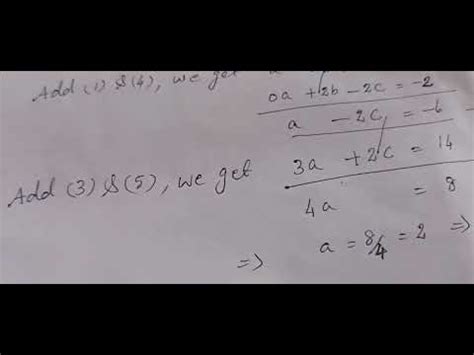 Add (1) & (4), we get a
0a + 2b - 2c = -2
a - 2c = -6
Add (3) & (5), we get
3a + 2c = 14
4a = 8
=> a = 8/4 = 2 =>